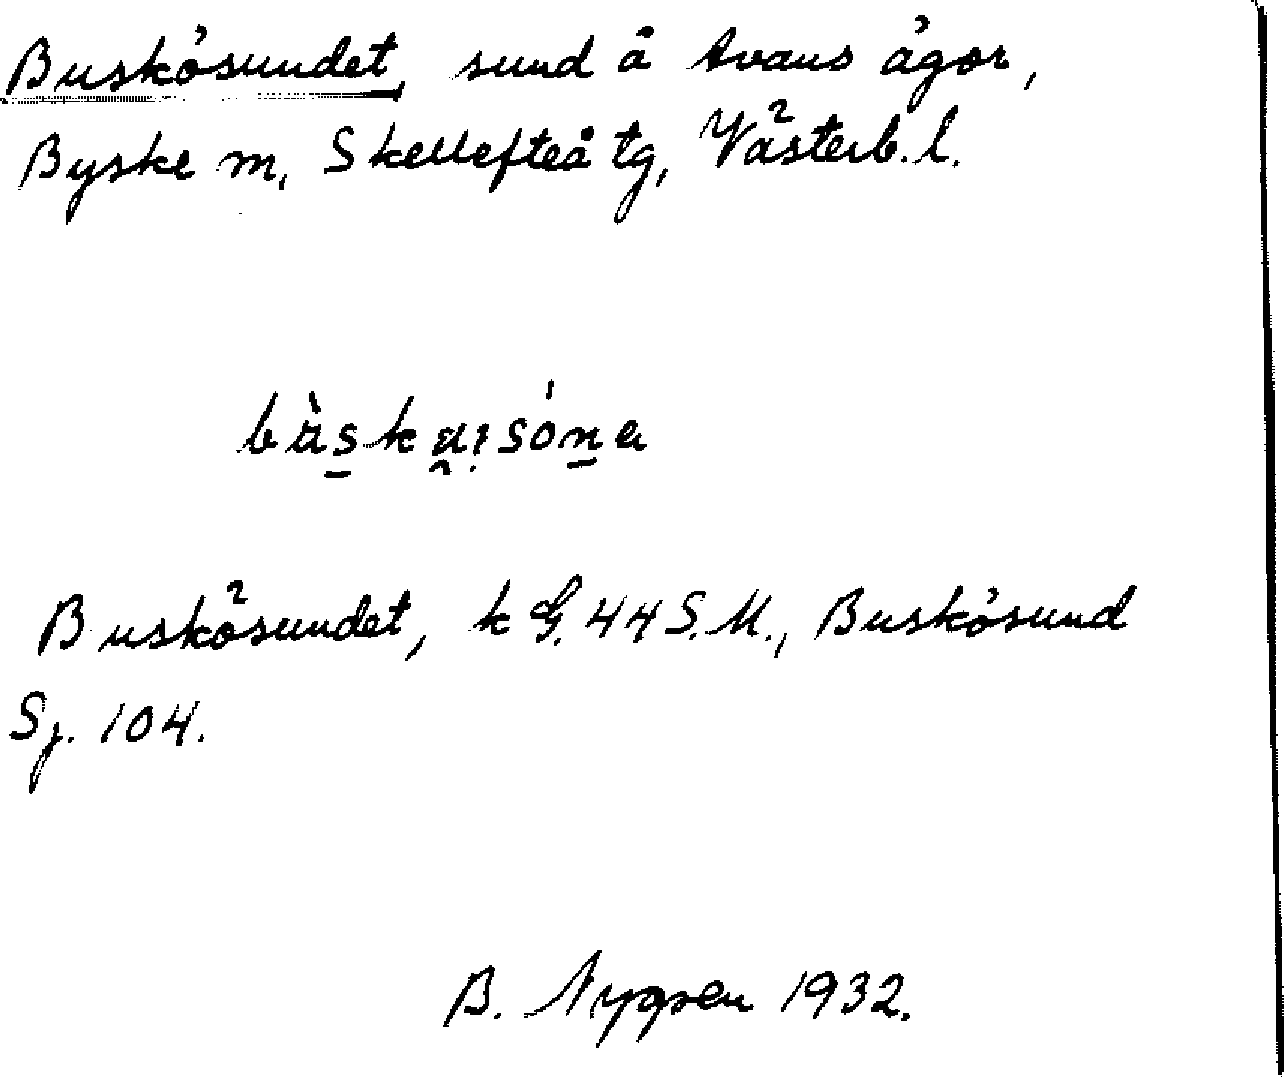 Buskösundet, sund å Avans ägor,
Byske m, Skellefteå tg, Västerb. l.
Buskösundet, k G. 44 S.M., Buskösund
Sj. 104.
B. Nygren 1932.